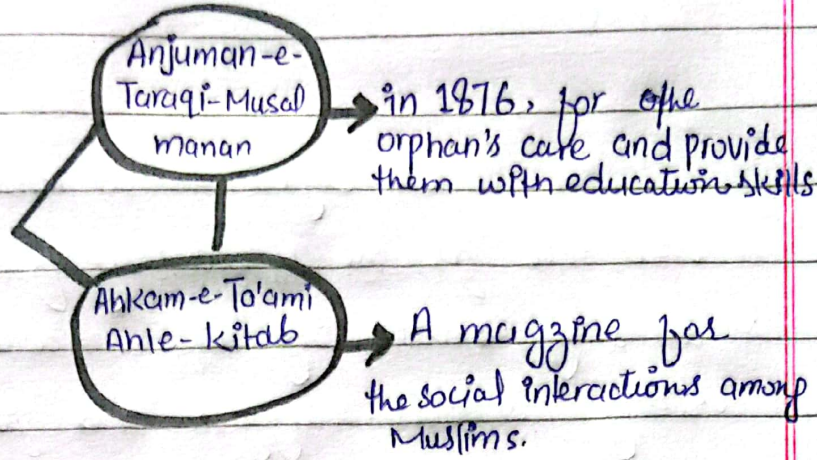 Anjuman-e-
Taraqi-Musal
manan
in 1876, for the
orphan's care and provide
them with education skills
Ahkam-e-To'ami
Ahle-kitab
A magzine for
the social interactions among
Muslims.